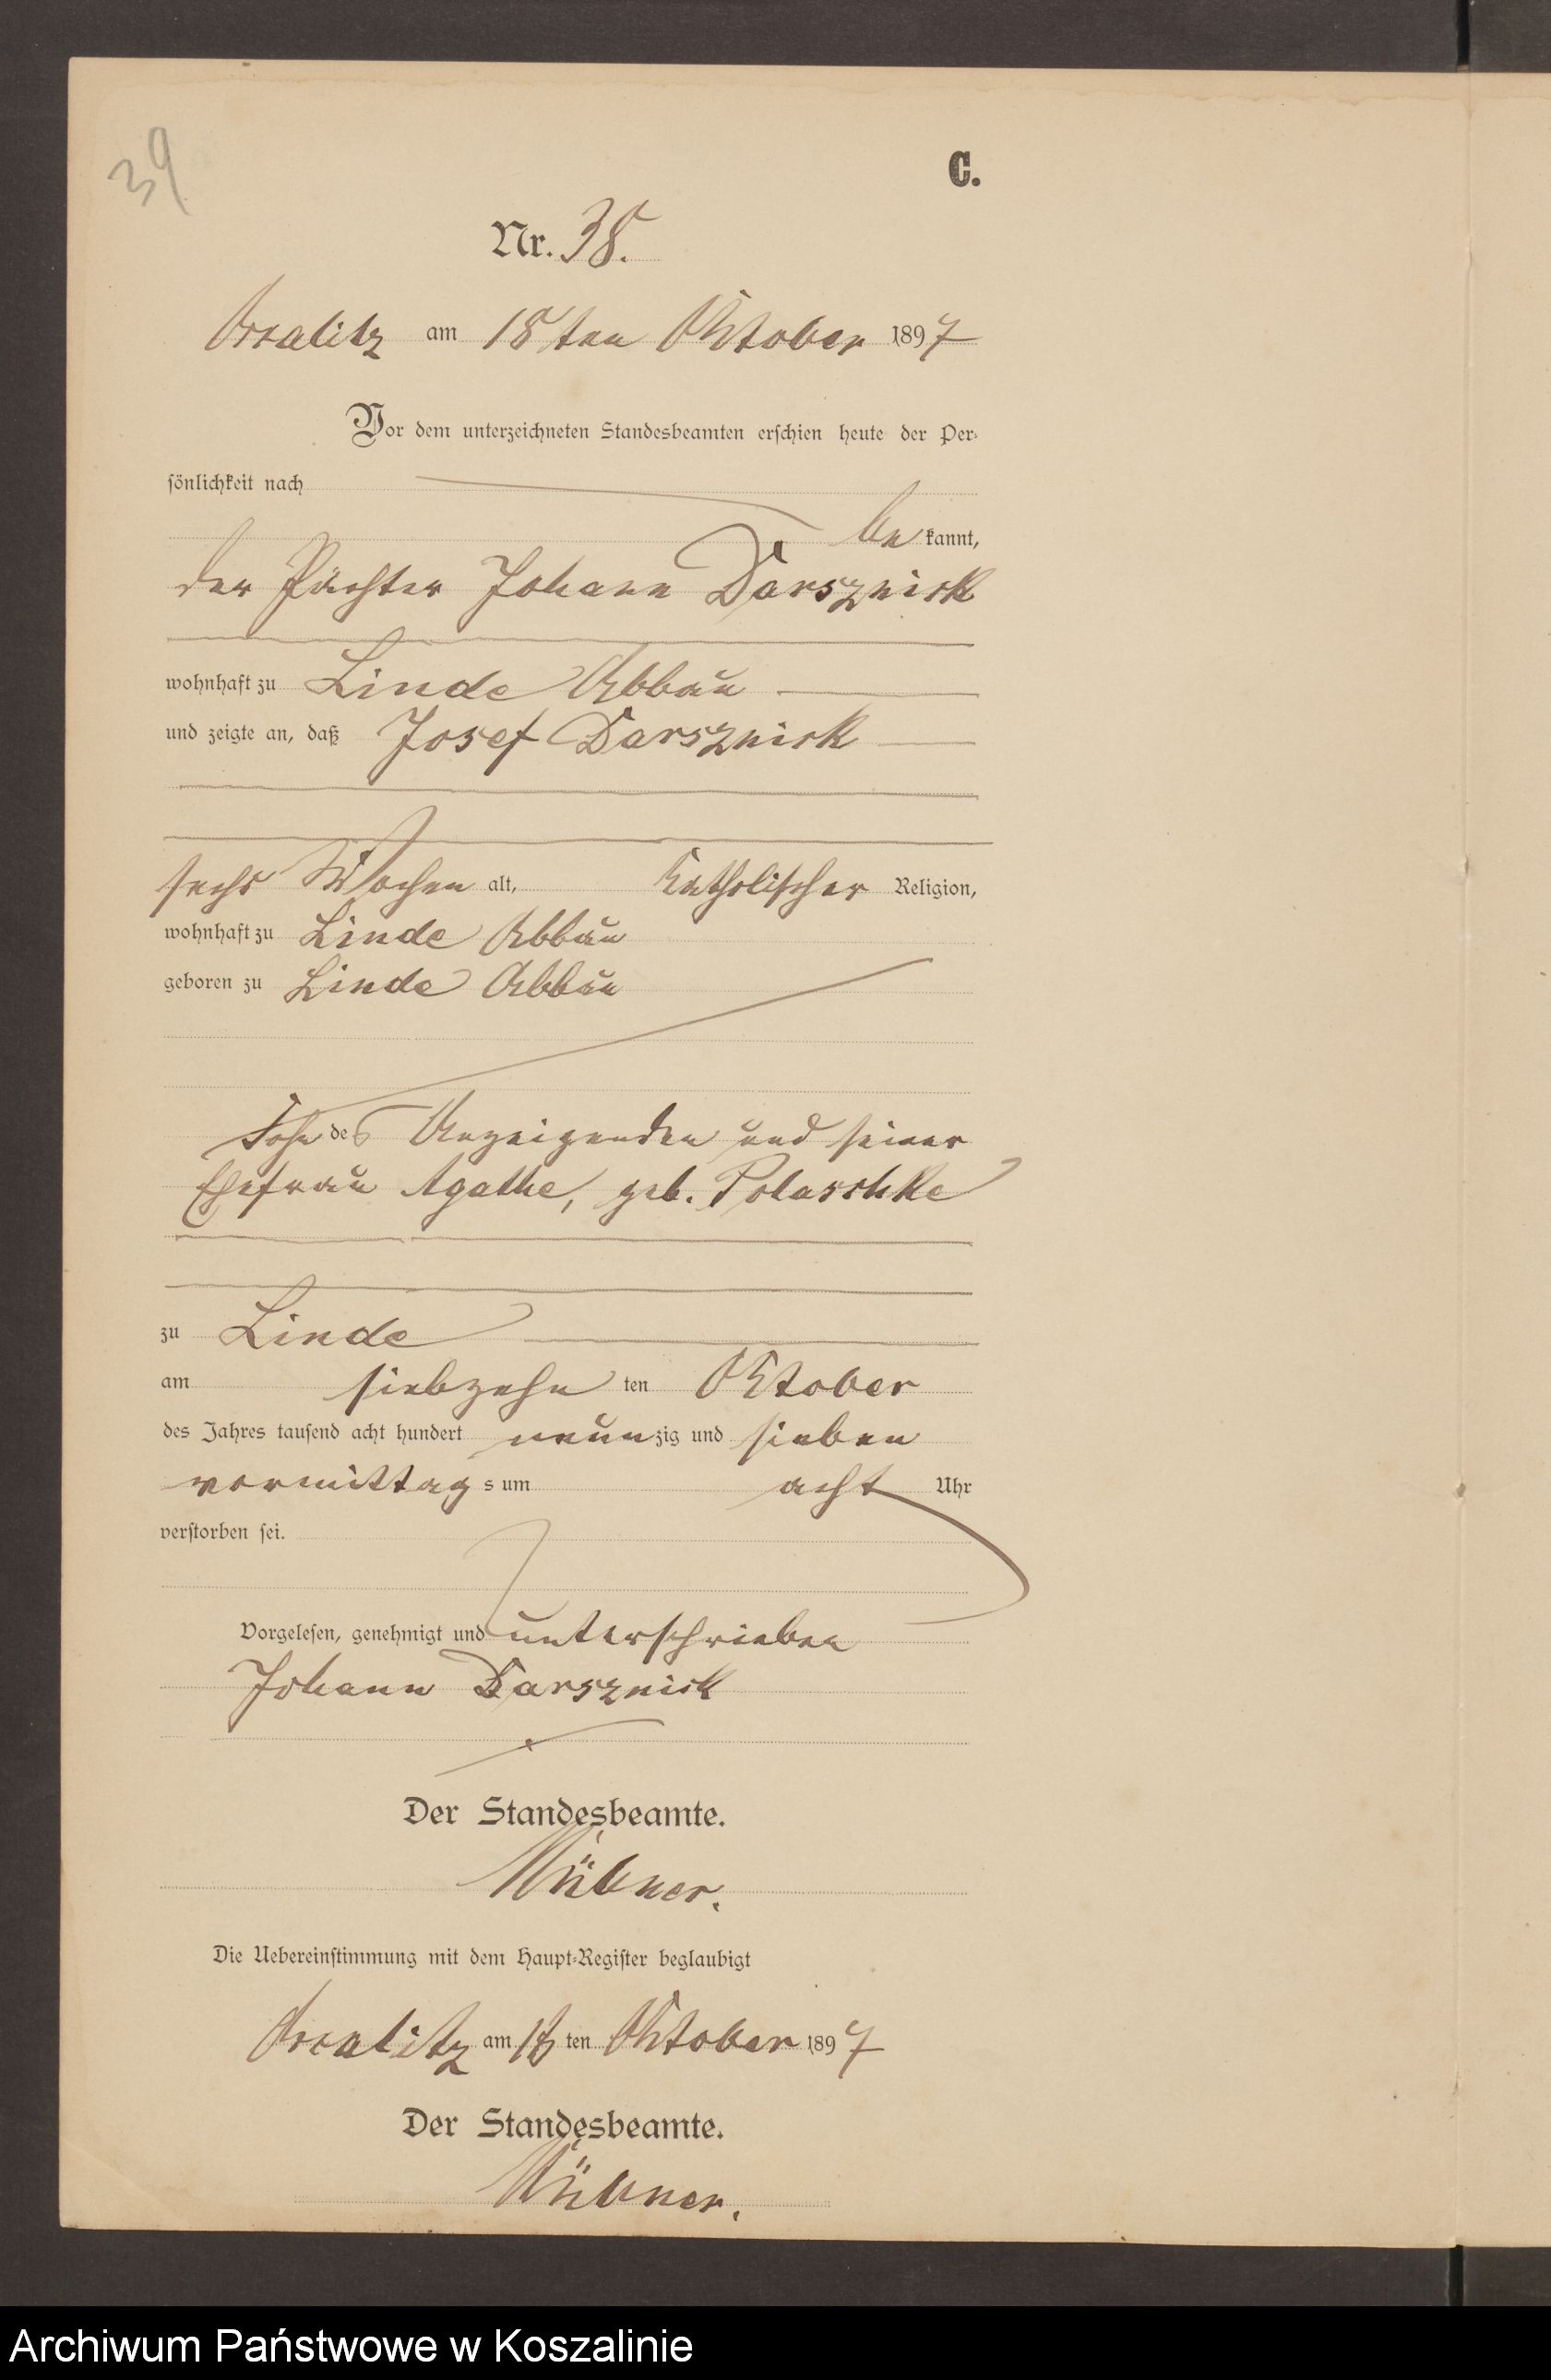 39
C.
Nr. 38.
am 18ten Oktober 1897
Vor dem unterzeichneten Standesbeamten erschien heute der Per-
sönlichkeit nach
be kannt,
der Pächter Johann Darsznick
wohnhaft zu Linde Abbau
und zeigte an, daß Josef Darsznick
sechs Wochen alt, katholischer Religion,
wohnhaft zu Linde Abbau
geboren zu Linde Abbau
Sohn des Anzeigenden und seiner
Ehefrau Agathe, geb. Polaschke
zu Linde
am siebzehn ten Oktober
des Jahres tausend acht hundert neunzig und sieben
vormittags um acht Uhr
verstorben sei.
Vorgelesen, genehmigt und unterschrieben
Johann Darsznick
Der Standesbeamte.
Die Uebereinstimmung mit dem Haupt-Register beglaubigt
am 18ten Oktober 1897
Der Standesbeamte.
Archiwum Państwowe w Koszalinie